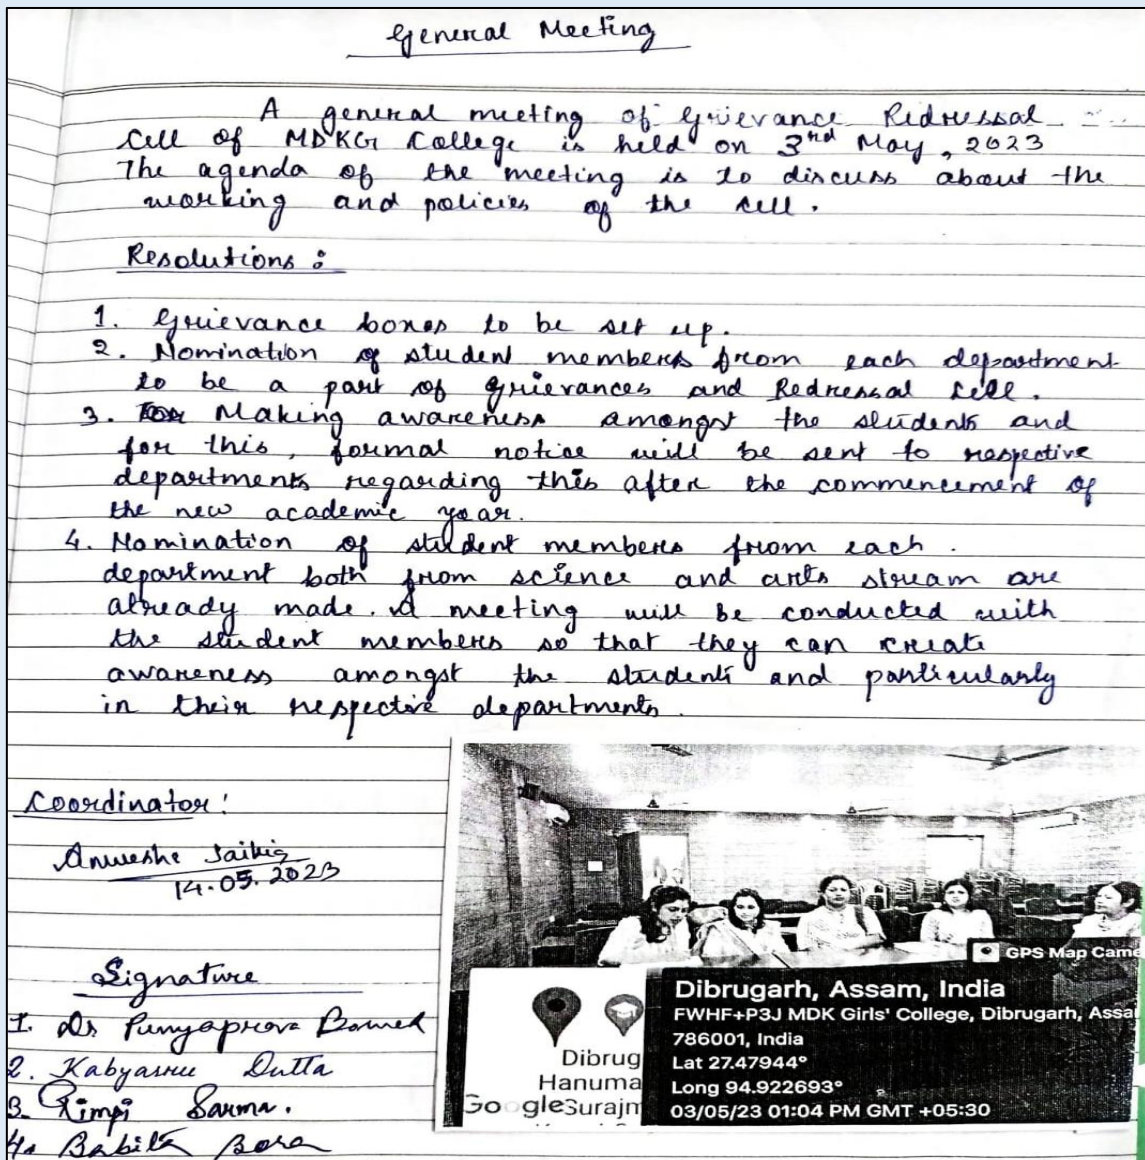 General Meeting
A general meeting of Grievance Redressal
Cell of MDKG College is held on 3rd May, 2023
The agenda of the meeting is to discuss about the
working and policies of the cell.
Resolutions :
1. Grievance boxes to be set up.
2. Nomination of student members from each department
to be a part of grievances and Redressal Cell.
3. Making awareness amongst the students and
for this, formal notice will be sent to respective
departments regarding this after the commencement of
the new academic year.
4. Nomination of student members from each
department both from science and arts stream are
already made. A meeting will be conducted with
the student members so that they can create
awareness amongst the students and particularly
in their respective departments.
Coordinator :
Anweshe Saikia
14.05.2023
Signature
1. Dr Punyaprova
2. Kabyasree Dutta
3. Rimpi Sarma.
4. Babita Bora
GPS Map Came
Dibrugarh, Assam, India
FWHF+P3J MDK Girls' College, Dibrugarh, Assa
786001, India
Lat 27.47944°
Long 94.922693°
03/05/23 01:04 PM GMT +05:30
Dibrug
Hanuma
Google Surajm